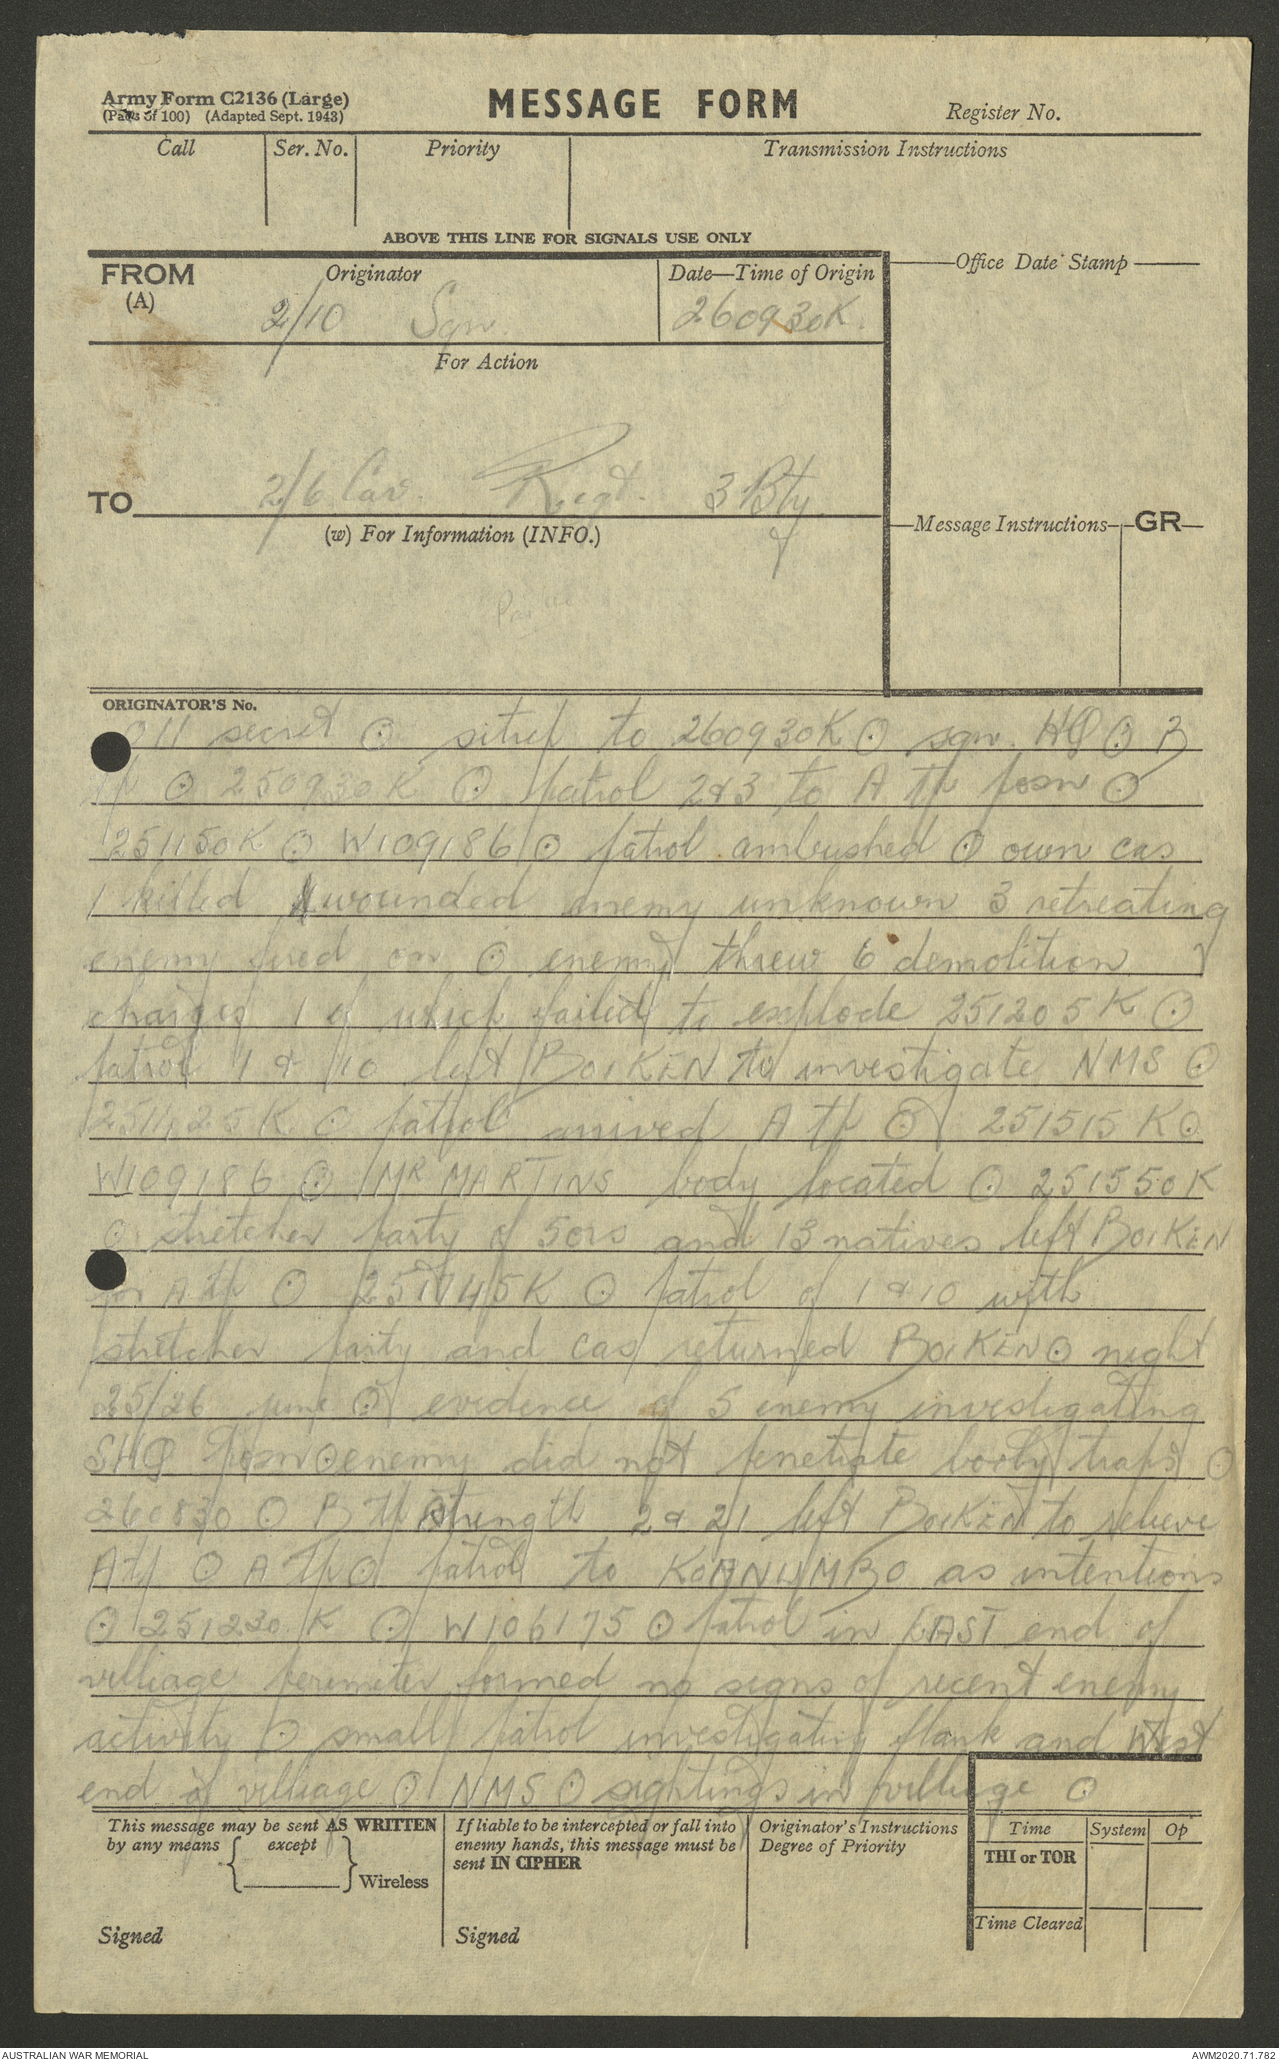 Army Form C2136 (Large)
(Pads of 100) (Adapted Sept. 1943)
MESSAGE FORM
Register No.
Call
Ser. No.
Priority
Transmission Instructions
ABOVE THIS LINE FOR SIGNALS USE ONLY
FROM
(A)
Originator
2/10 Sqn.
Date—Time of Origin
260930K.
Office Date Stamp
For Action
TO
2/6 Cav. Regt. 3 Bty.
(w) For Information (INFO.)
Message Instructions
GR
ORIGINATOR'S No.
011 secret ⊙ sitrep to 260930K ⊙ sqn. HQ ⊙ B
tp ⊙ 250930K ⊙ patrol 2&3 to A tp posn ⊙
251150K ⊙ W109186 ⊙ patrol ambushed ⊙ own cas
1 killed 1 wounded enemy unknown 3 retreating
enemy fired on ⊙ enemy threw 6 demolition
charges 1 of which failed to explode 251205K ⊙
patrol 1 & 10 left BOIKEN to investigate NMS ⊙
251425K ⊙ patrol arrived A tp ⊙ 251515K ⊙
W109186 ⊙ MR MARTINS body located ⊙ 251550K
⊙ stretcher party of 5ors and 13 natives left BOIKEN
for A tp ⊙ 251745K ⊙ patrol of 1 & 10 with
stretcher party and cas returned BOIKEN ⊙ night
25/26 june ⊙ evidence of 5 enemy investigating
SHQ posn ⊙ enemy did not penetrate booby traps ⊙
260830 ⊙ B tp strength 2 & 21 left BOIKEN to relieve
A tp ⊙ A tp ⊙ patrol to KOANUMBO as intentions
⊙ 251230K ⊙ W106175 ⊙ patrol in EAST end of
villiage perimeter formed no signs of recent enemy
activity ⊙ small patrol investigating flank and West
end of villiage ⊙ NMS ⊙ sightings in villiage ⊙
This message may be sent AS WRITTEN
by any means
except
Wireless
Signed
If liable to be intercepted or fall into
enemy hands, this message must be
sent IN CIPHER
Signed
Originator's Instructions
Degree of Priority
Time
System
Op
THI or TOR
Time Cleared
AUSTRALIAN WAR MEMORIAL
AWM2020.71.782